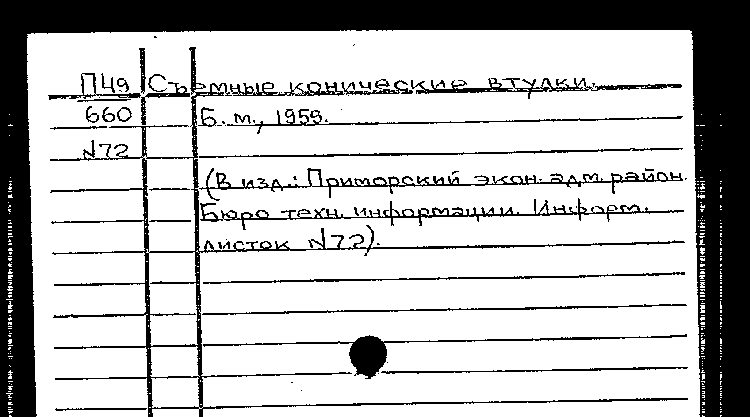 П49 Съемные конические втулки.
660 Б. м., 1959.
N72
(В изд.: Приморский экон. адм. район.
Бюро техн. информации. Информ.
листок N72).